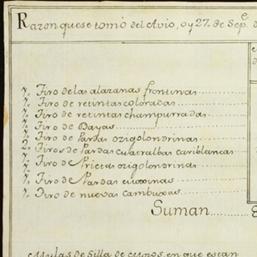 Razon que se tomó del Avio, oy 27. de Sep.e
1. Tiro de las alazanas frontinas
1. Tiro de retintas coloradas
1. Tiro de retintas champurradas
1. Tiro de Bayas
1. Tiro de Pardas origolondrinas
2. Tiros de Pardas cuatralbas cariblancas
1. Tiro de Prietas origolondrinas
1. Tiro de Pardas
1. Tiro de nuevas cambujas
Suman
Mulas de silla de en que estan